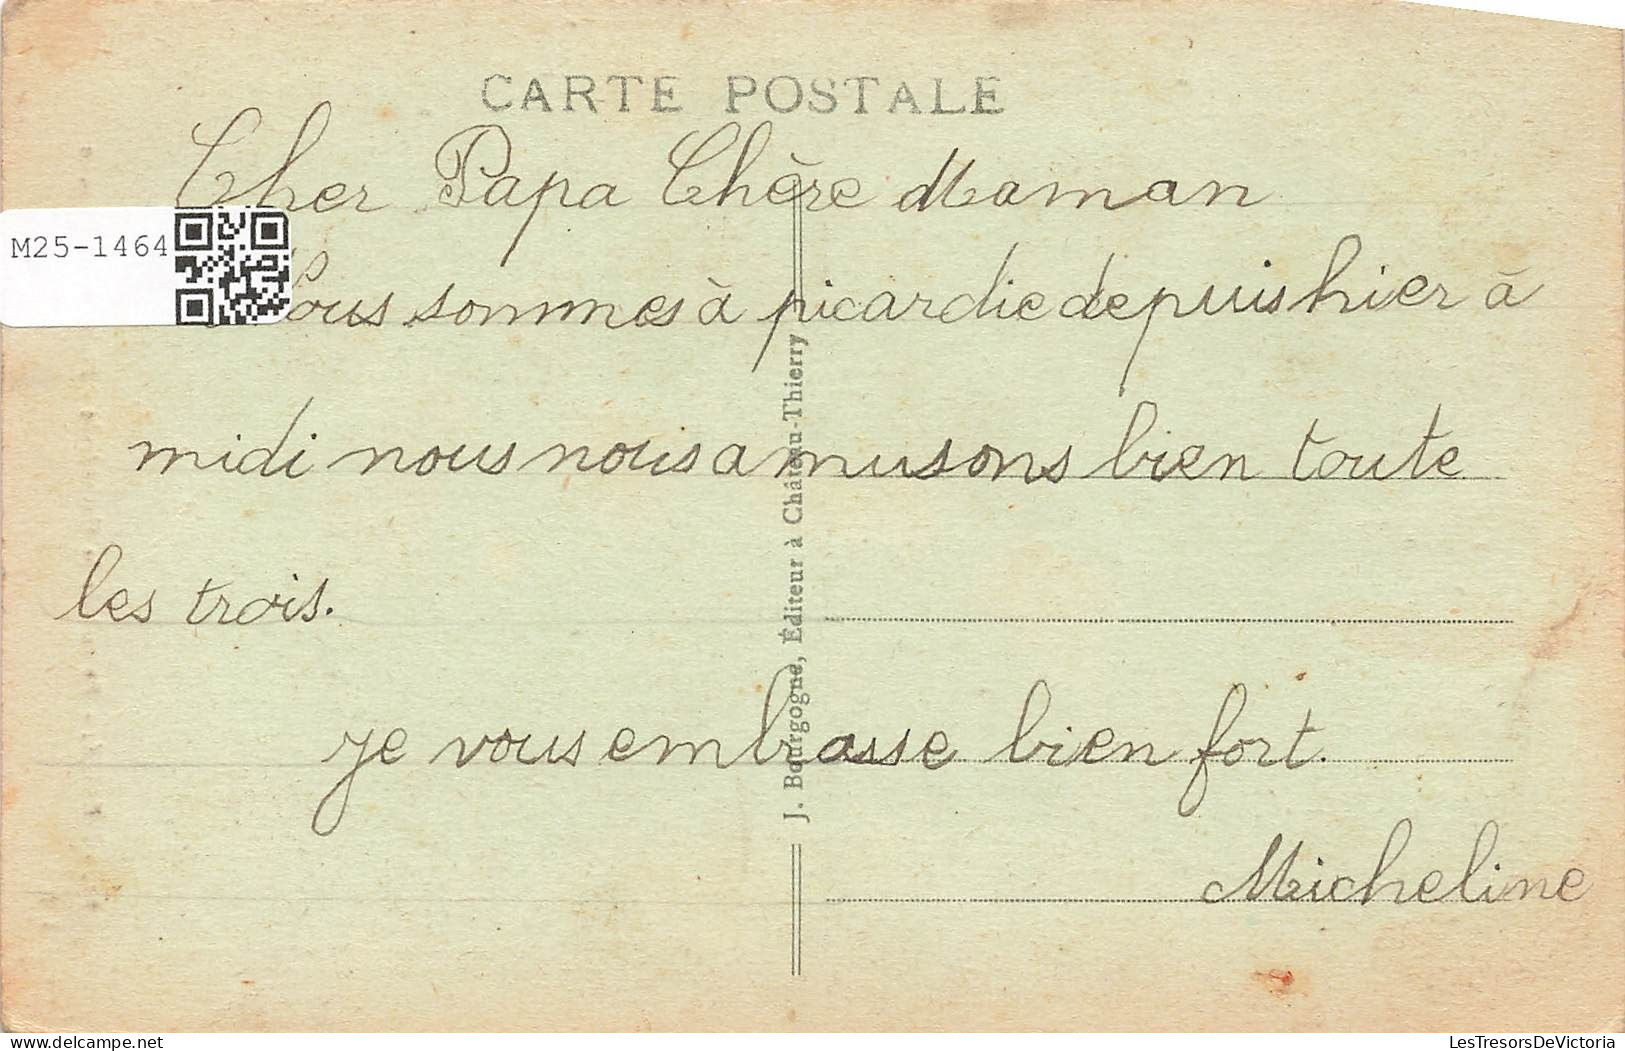 CARTE POSTALE
Cher Papa Chère Maman
M25-1464
Nous sommes à picardie depuis hier à
midi nous nous amusons bien toute
les trois.
je vous embrasse bien fort.
Micheline
J. Bourgogne, Éditeur à Château-Thierry
delcampe.net
LesTresorsDeVictoria